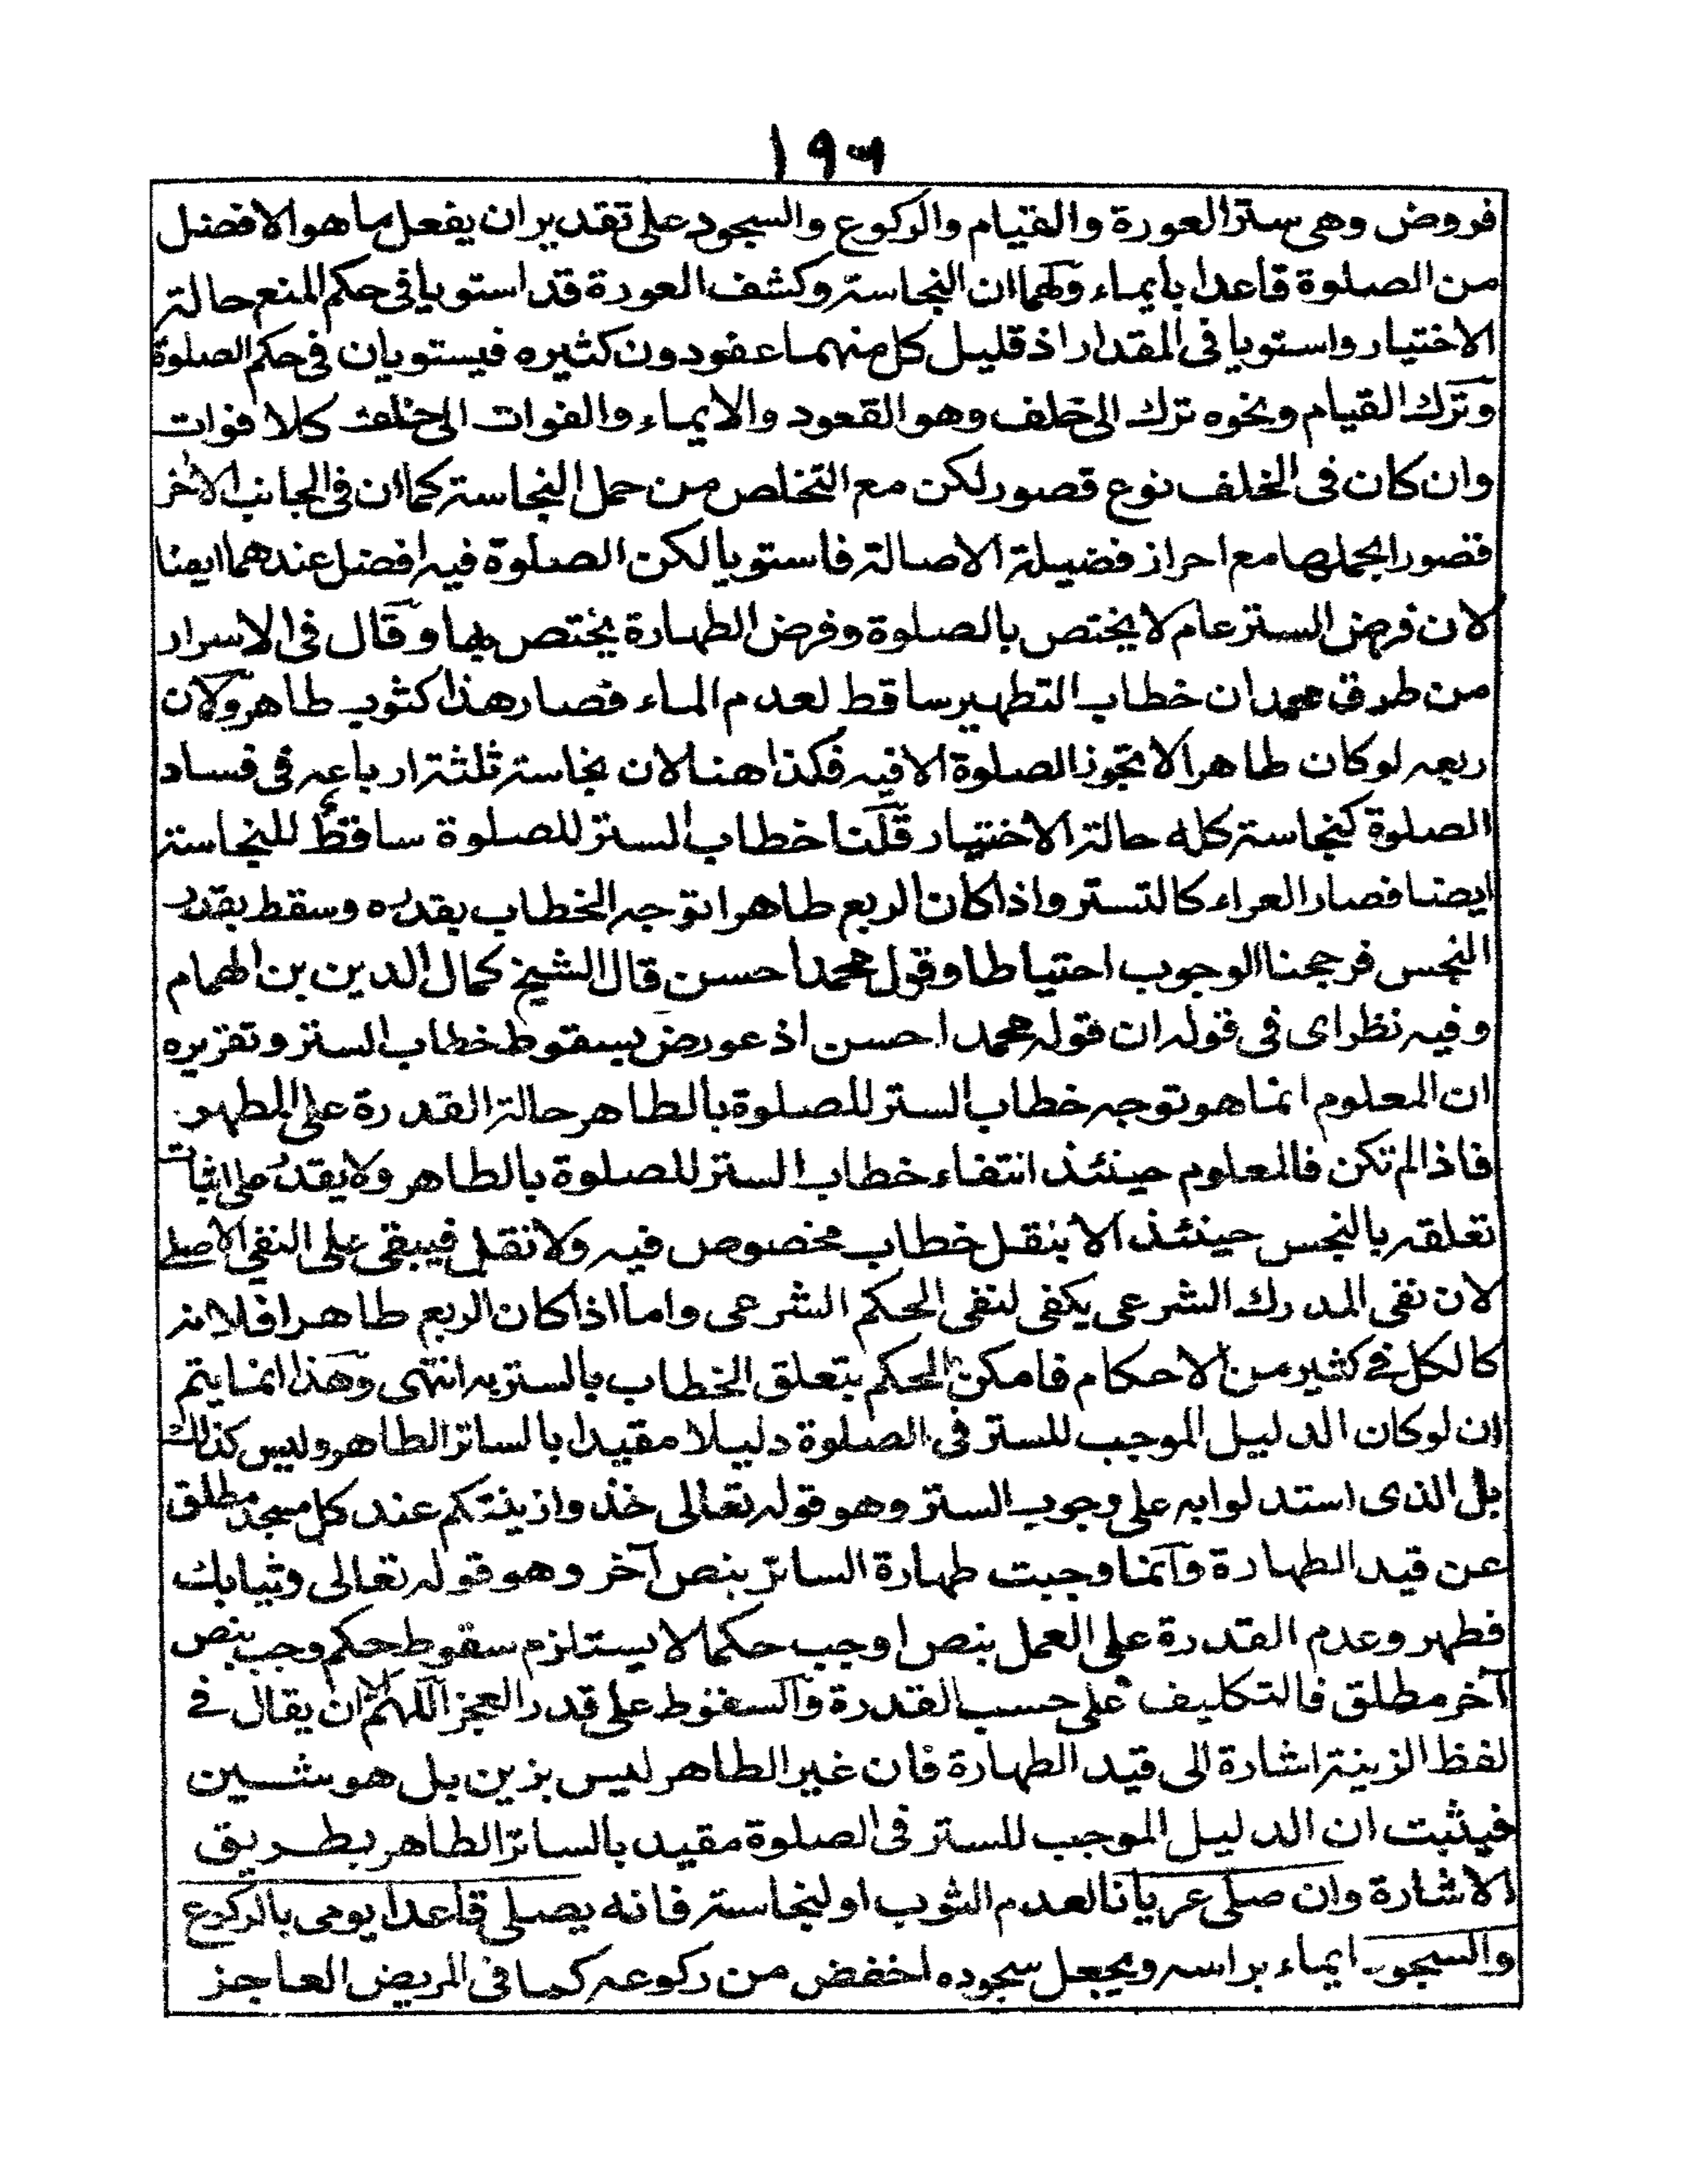 ١٩٦
فروض وهي ستر العورة والقيام والركوع والسجود على تقدير ان يفعل ما هو الافضل
من الصلوة قاعدا بايماء ولهما ان النجاسة وكشف العورة قد استويا فى حكم المنع حالة
الاختيار واستويا فى المقدار اذ قليل كل منهما عفو دون كثيره فيستويان فى حكم الصلوة
وترك القيام ونحوه ترك الى خلف وهو القعود والايماء والفوات الى خلف كلا فوات
وان كان فى الخلف نوع قصور لكن مع التخلص من حمل النجاسة كما ان فى الجانب الاخر
قصور الحملها مع احراز فضيلة الاصالة فاستويا لكن الصلوة فيه افضل عندهما ايضا
لان فرض الستر عام لا يختص بالصلوة وفرض الطهارة يختص بها وقال فى الاسرار
من طرق محمد ان خطاب التطهير ساقط لعدم الماء فصار هذا كثوب طاهر ولان
ربعه لو كان طاهرا لا تجوز الصلوة الا فيه فكذا هنا لان نجاسة ثلثة ارباعه فى فساد
الصلوة كنجاسة كله حالة الاختيار قلنا خطاب الستر للصلوة ساقط للنجاسة
ايضا فصار العراء كالتستر واذا كان الربع طاهرا توجه الخطاب بقدره وسقط بقدر
النجس فرجحنا الوجوب احتياطا وقول محمد احسن قال الشيخ كمال الدين بن الهمام
وفيه نظر اى فى قوله ان قوله محمد احسن اذ عورض بسقوط خطاب الستر وتقريره
ان المعلوم انما هو توجه خطاب الستر للصلوة بالطاهر حالة القدرة على المطهر
فاذا لم تكن فالمعلوم حينئذ انتفاء خطاب الستر للصلوة بالطاهر ولا يقدر على اثبات
تعلقه بالنجس حينئذ الا بنقل خطاب مخصوص فيه ولا نقل فيبقى على النفى الاصلى
لان نفى المدرك الشرعى يكفى لنفى الحكم الشرعى واما اذا كان الربع طاهرا فلانه
كالكل فى كثير من الاحكام فامكن الحكم بتعلق الخطاب بالستر به انتهى وهذا انما يتم
ان لو كان الدليل الموجب للستر فى الصلوة دليلا مقيدا بالساتر الطاهر وليس كذلك
بل الذى استدلوا به على وجوب الستر وهو قوله تعالى خذوا زينتكم عند كل مسجد مطلق
عن قيد الطهارة وانما وجبت طهارة الساتر بنص آخر وهو قوله تعالى وثيابك
فطهر وعدم القدرة على العمل بنص اوجب حكما لا يستلزم سقوط حكم وجب بنص
آخر مطلق فالتكليف على حسب القدرة والسقوط على قدر العجز اللهم الا ان يقال فى
لفظ الزينة اشارة الى قيد الطهارة فان غير الطاهر ليس بزين بل هو شين
فيثبت ان الدليل الموجب للستر فى الصلوة مقيد بالساتر الطاهر بطريق
الاشارة وان صلى عريانا لعدم الثوب او لنجاسته فانه يصلى قاعدا يومى بالركوع
والسجود ايماء براسه ويجعل سجوده اخفض من ركوعه كما فى المريض العاجز